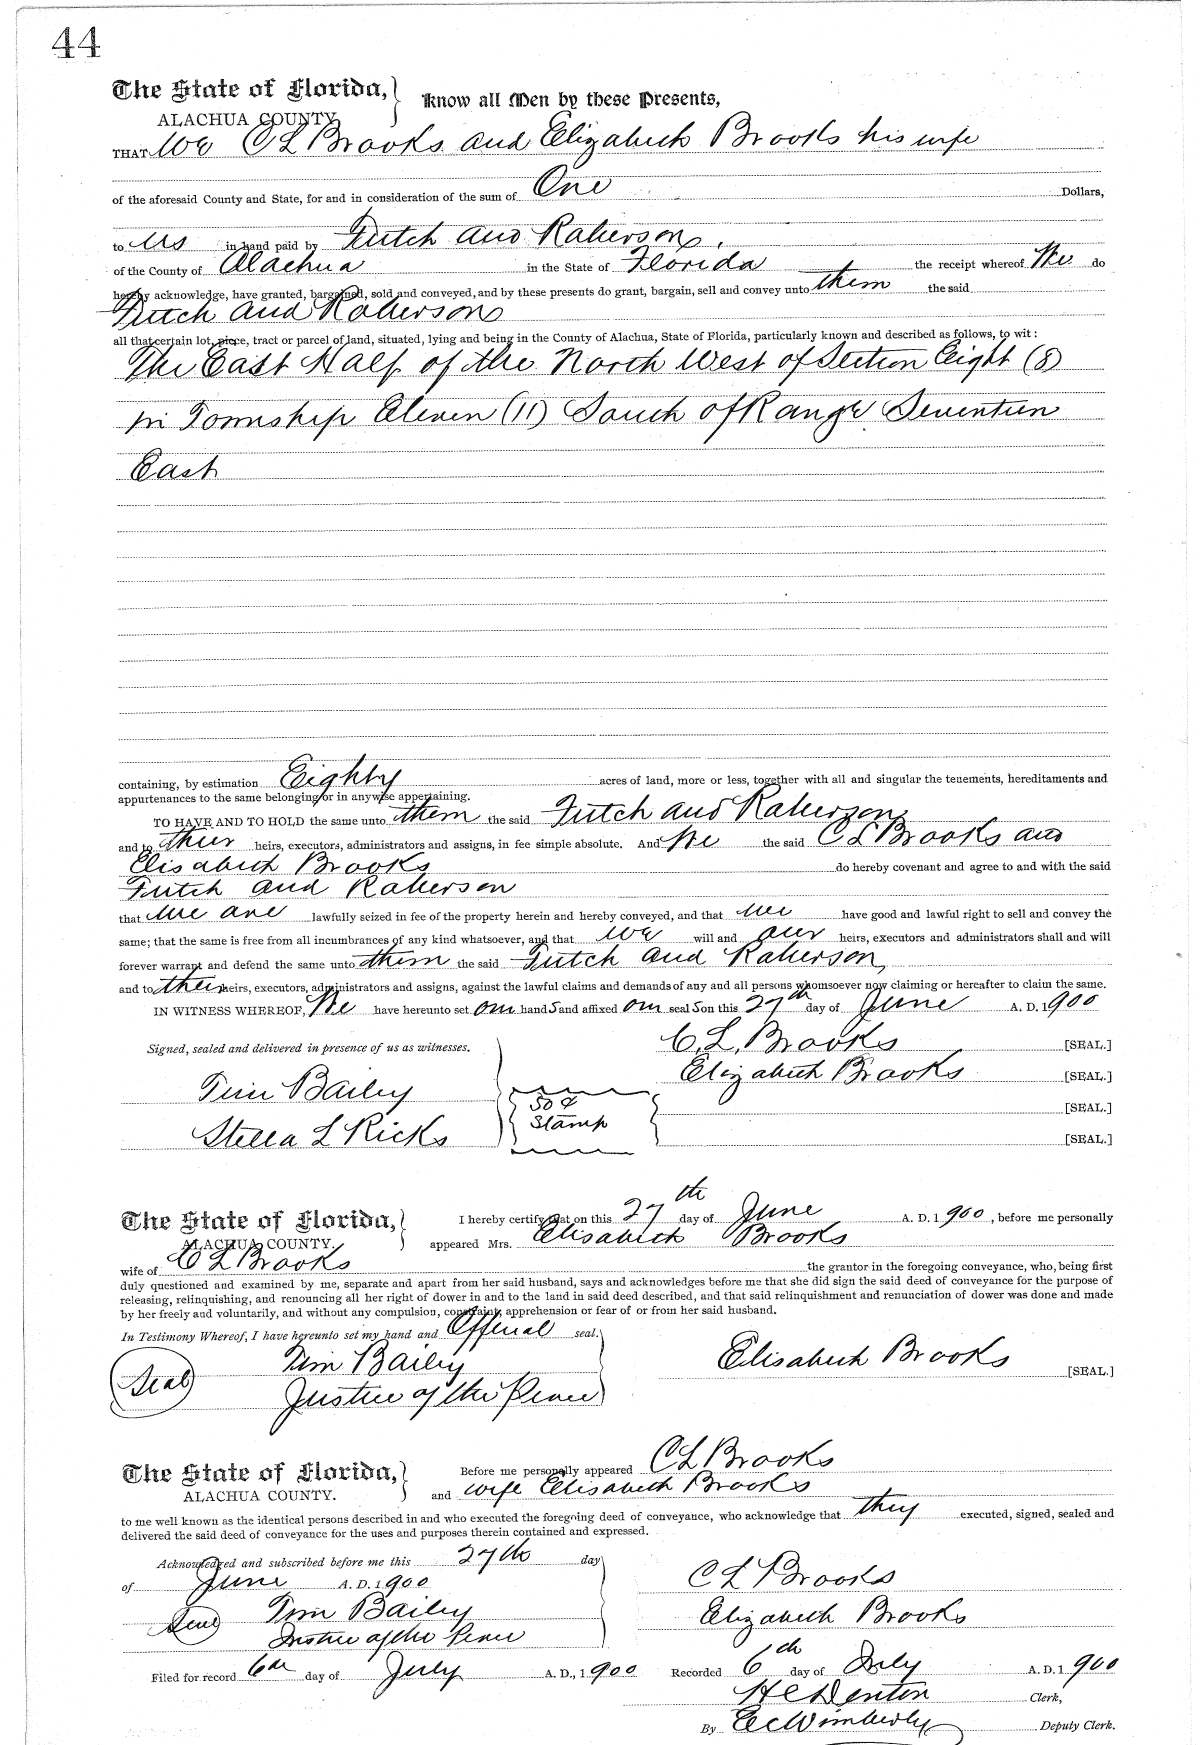 44
The State of Florida, } Know all Men by these Presents,
ALACHUA COUNTY.
THAT We C L Brooks and Elizabeth Brooks his wife
of the aforesaid County and State, for and in consideration of the sum of One Dollars,
to us in hand paid by Futch and Raherson,
of the County of Alachua in the State of Florida the receipt whereof We do
hereby acknowledge, have granted, bargained, sold and conveyed, and by these presents do grant, bargain, sell and convey unto them the said
Futch and Raherson
all that certain lot, piece, tract or parcel of land, situated, lying and being in the County of Alachua, State of Florida, particularly known and described as follows, to wit:
The East Half of the North West of Section Eight (8)
in Township Eleven (11) South of Range Seventeen
East
containing, by estimation Eighty acres of land, more or less, together with all and singular the tenements, hereditaments and
appurtenances to the same belonging or in anywise appertaining.
TO HAVE AND TO HOLD the same unto them the said Futch and Raherson
and to their heirs, executors, administrators and assigns, in fee simple absolute. And We the said C L Brooks and
Elisabeth Brooks do hereby covenant and agree to and with the said
Futch and Raherson
that we are lawfully seized in fee of the property herein and hereby conveyed, and that we have good and lawful right to sell and convey the
same; that the same is free from all incumbrances of any kind whatsoever, and that we will and our heirs, executors and administrators shall and will
forever warrant and defend the same unto them the said Futch and Raherson,
and to their heirs, executors, administrators and assigns, against the lawful claims and demands of any and all persons whomsoever now claiming or hereafter to claim the same.
IN WITNESS WHEREOF, We have hereunto set our hand s and affixed our seal s on this 27th day of June A. D. 1900
C. L. Brooks [SEAL.]
Signed, sealed and delivered in presence of us as witnesses.
Elizabeth Brooks [SEAL.]
Tim Bailey
50 ¢ [SEAL.]
Stamp
Stella L Ricks [SEAL.]
The State of Florida, } I hereby certify that on this 27th day of June A. D. 1900, before me personally
ALACHUA COUNTY. appeared Mrs. Elisabeth Brooks
wife of C L Brooks the grantor in the foregoing conveyance, who, being first
duly questioned and examined by me, separate and apart from her said husband, says and acknowledges before me that she did sign the said deed of conveyance for the purpose of
releasing, relinquishing, and renouncing all her right of dower in and to the land in said deed described, and that said relinquishment and renunciation of dower was done and made
by her freely and voluntarily, and without any compulsion, constraint, apprehension or fear of or from her said husband.
In Testimony Whereof, I have hereunto set my hand and Official seal.
Seal Tim Bailey Elisabeth Brooks [SEAL.]
Justice of the Peace
The State of Florida, } Before me personally appeared C L Brooks
ALACHUA COUNTY. and wife Elisabeth Brooks
to me well known as the identical persons described in and who executed the foregoing deed of conveyance, who acknowledge that they executed, signed, sealed and
delivered the said deed of conveyance for the uses and purposes therein contained and expressed.
Acknowledged and subscribed before me this 27th day
of June A. D. 1900 C L Brooks
Seal Tim Bailey Elizabeth Brooks
Justice of the Peace
Filed for record 6th day of July A. D., 1900 Recorded 6th day of July A. D. 1900
H C Denton Clerk,
By E C Wimberly Deputy Clerk.